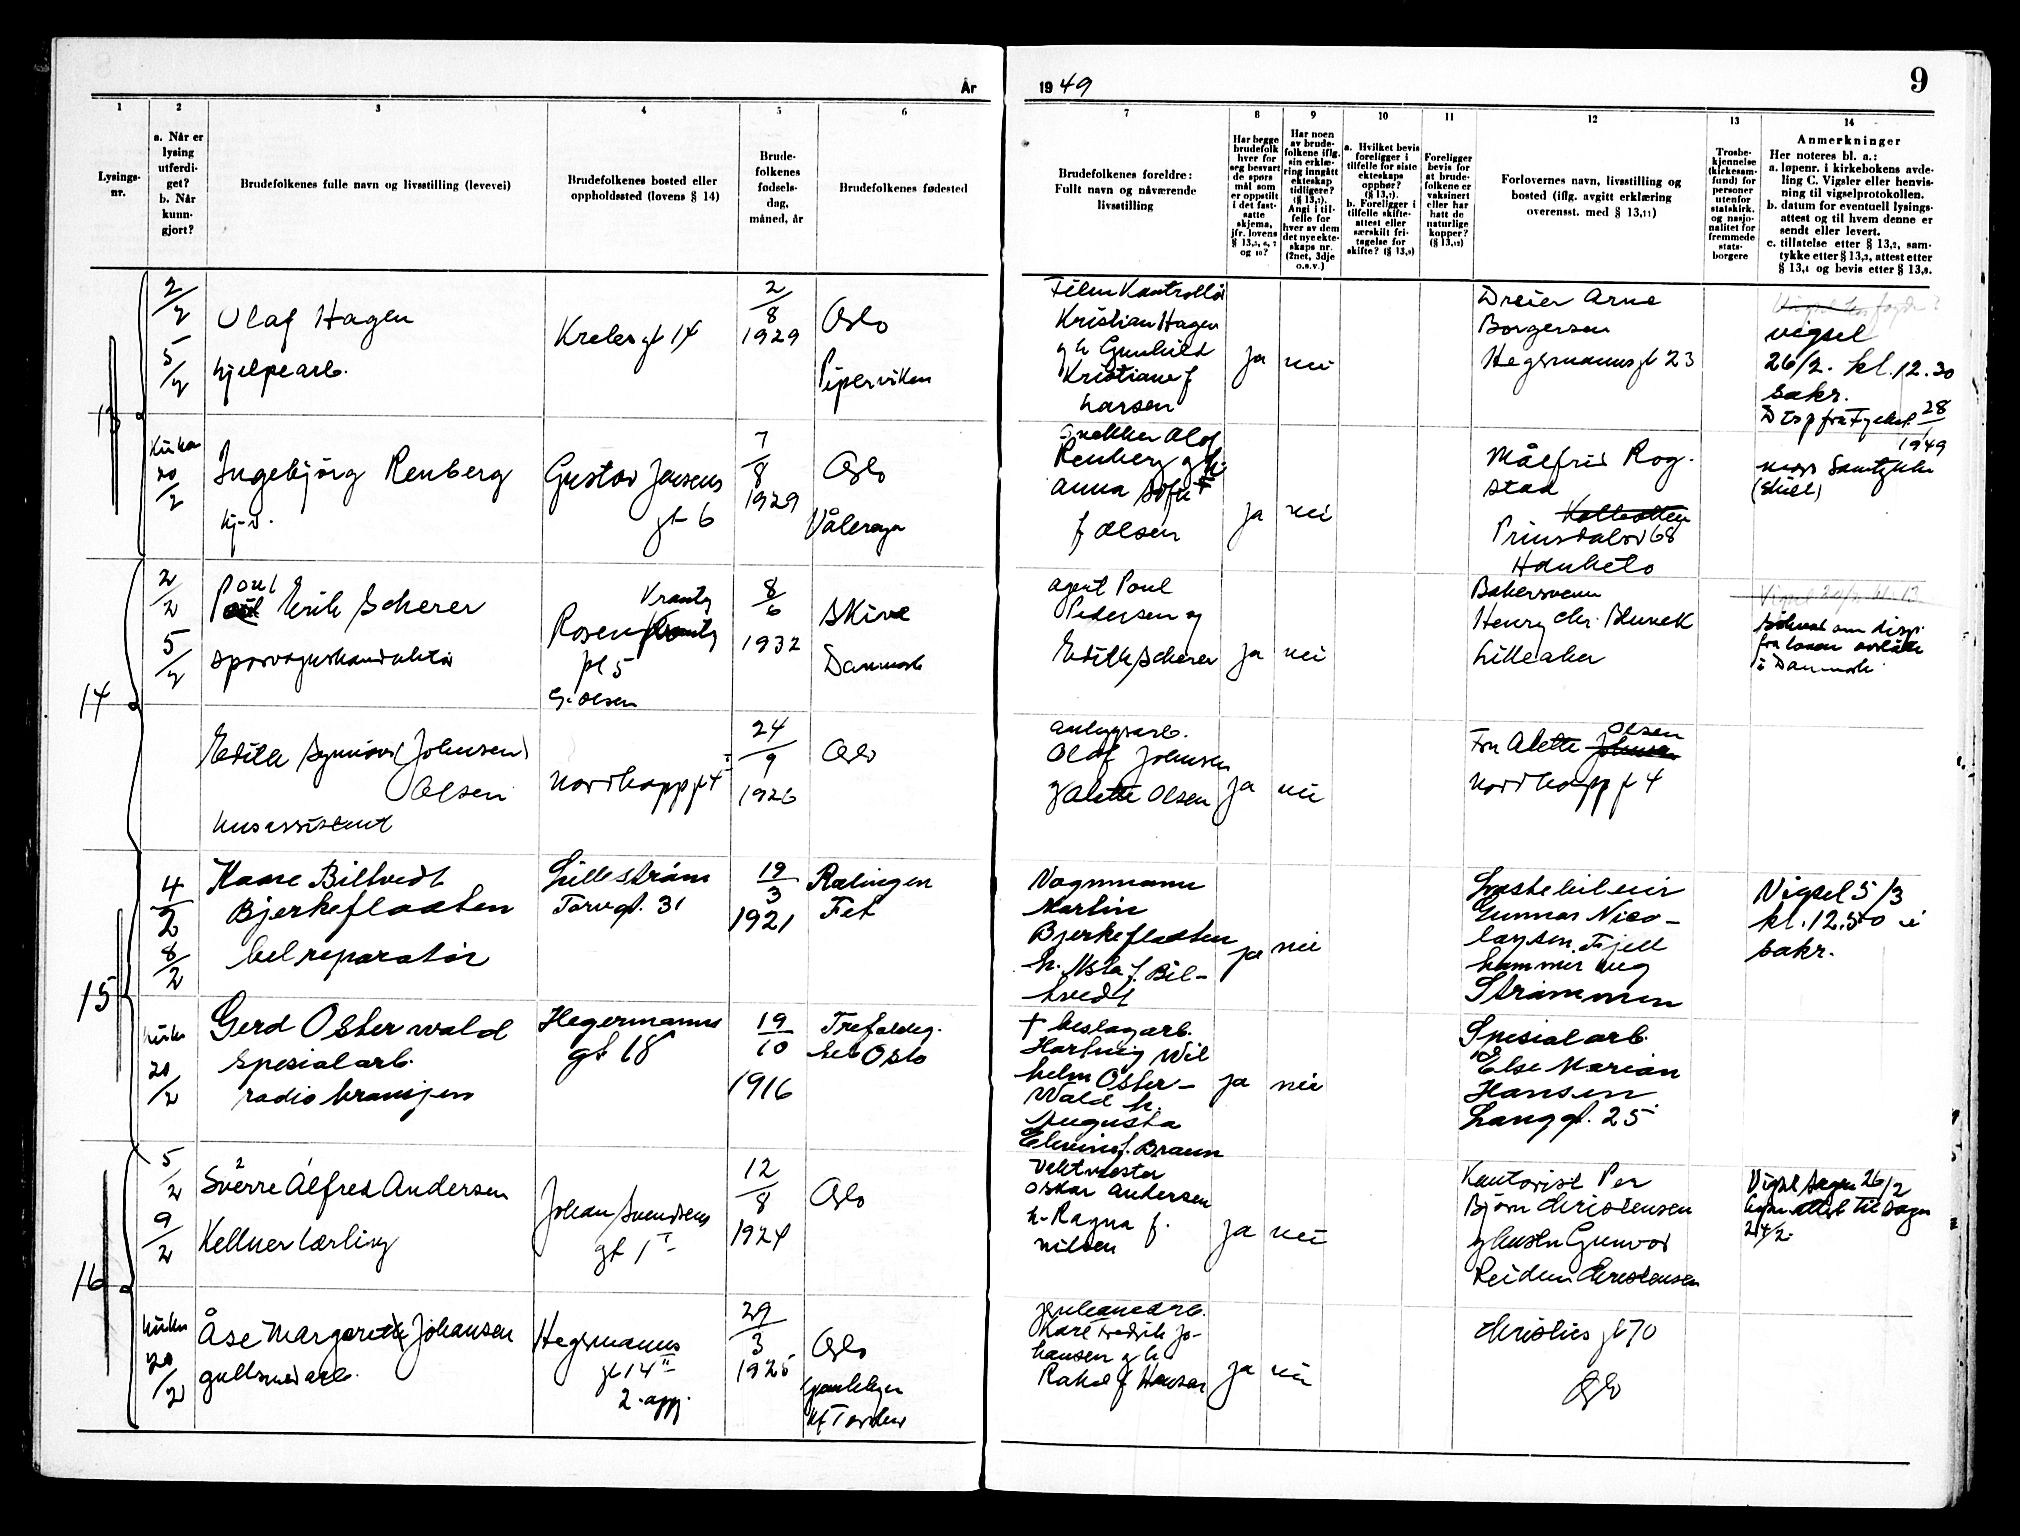 År
1949
9
1
2
3
4
5
6
7
8
9
10
11
12
13
14
Lysings-
nr.
a. Når er
lysing
utferdi-
get?
b. Når
kunn-
gjort?
Brudefolkenes fulle navn og livsstilling (levevei)
Brudefolkenes bosted eller
oppholdssted (lovens § 14)
Brude-
folkenes
fødsels-
dag,
måned, år
Brudefolkenes fødested
Brudefolkenes foreldre:
Fullt navn og nåværende
livsstilling
Har begge
brudefolk
hver for
seg besvart
de spørs
mål som
er oppstilt
i det fast-
satte
skjema,
jfr. lovens
§ 13,5, 6, 7
og 10?
Har noen
av brude-
folkene iflg.
sin erklæ-
ring inngått
ekteskap
tidligere?
(§ 13,7).
Angi i til-
felle for
hver av dem
det nye ekte-
skaps nr.
(2net, 3dje
o.s.v.)
a. Hvilket bevis
foreligger i
tilfelle for siste
ekteskaps
opphør?
(§ 13,7).
b. Foreligger i
tilfelle skifte-
attest eller
særskilt fri-
tagelse for
skifte? (§ 13,9)
Foreligger
bevis for
at brude-
folkene er
vaksinert
eller har
hatt de
naturlige
kopper?
(§ 13,12)
Forlovernes navn, livsstilling og
bosted (iflg. avgitt erklæring
overensst. med § 13,11)
Trosbe-
kjennelse
(kirkesam-
fund) for
personer
utenfor
statskirk.
og nasjo-
nalitet for
fremmede
stats-
borgere
Anmerkninger
Her noteres bl. a.:
a. løpenr. i kirkebokens avde-
ling C. Vigsler eller henvis-
ning til vigselprotokollen.
b. datum for eventuell lysings-
attest og til hvem denne er
sendt eller levert.
c. tillatelse etter § 13,2, sam-
tykke etter § 13,3, attest etter
§ 13,4 og bevis etter § 13,8.
13
2/2
5/2
Olaf Hagen
hjelpearb.
Krebs gt 14
2/8
1929
Oslo
Piperviken
Film Kontrollør
Kristian Hagen
og h Gunhild
Kristiane f
Larsen
ja
nei
Dreier Arne
Borgersen
Hegermanns gt 23
vigsel
26/2. kl. 12.30
sakr.
Disp fra Fylket 28/
1949
Samtykke
kirken
20/2
Ingebjörg Renberg
Gustav Jensens
gt 6
7/8
1929
Oslo
Vålerenga
Snekker Olof
Renberg og h.
Anna Sofie
f Olsen
ja
nei
Målfrid Rog-
stad
Kolbotten
Prinsdalsv 68
Hauketo
14
2/2
5/2
Poul Erik Scherer
sporvognskonduktør
Rosenkrantz
pl 5
G. Olsen
8/6
1932
Skive
Danmark
agent Poul
Pedersen og
Edith Scherer
ja
nei
Bakersvenn
Henry Chr. Blunck
Lilleaker
Söknad om disp.
i Danmark
Edith Synnöve (Johnsen)
Olsen
husassistent
Nordkappgt 4
24/9
1926
Oslo
anleggsarb.
Olof Johnsen
g Alette Olsen
ja
nei
Fru Alette Johnsen Olsen
Nordkapp gt 4
15
4/2
8/2
Kaare Biltvedt
Bjerkeflaaten
bilreparatør
Lillestrøm
Torvgt. 31
19/3
1921
Rælingen
Fet
Vognmann
Martin
Bjerkeflaaten
h. Asta f. Bil-
tvedt
ja
nei
Lastebileier
Gunnar Nico-
laysen Fjell
hammer veg
Strømmen
Vigsel 5/3
kl. 12.30 i
sakr.
kirken
20/2
Gerd Osterwald
spesialarb.
radiobransjen
Hegermanns
gt 18
19/10
1916
Trefoldig.
het Oslo
† beslagarb.
Hartvig Wil
helm Oster-
Wald h.
Augusta
Elvine f. Braum
ja
nei
Spesialarb.
Else Marian
Hansen
Langgt. 25
16
5/2
9/2
Sverre Alfred Andersen
Kellnerlærling
Johan Svendsens
gt 1
12/8
1924
Oslo
Vektmester
Oskar Andersen
h. Ragna f.
Nilsen
ja
nei
Kontorist Per
Björn Christensen
g hustru Gunvor
Reidun Christensen
Vigsel Sagene 26/2
attest til Sagene
24/2.
kirken
20/2
Åse Margareth Johansen
gullsmedarb.
Hegermanns
gt 14 II
2. opg.
29/3
1925
Oslo
Gamlebyen
Karl Fredrik Jo-
hansen g h
Rakel f Hansen
ja
nei
Christies gt 70
Oslo